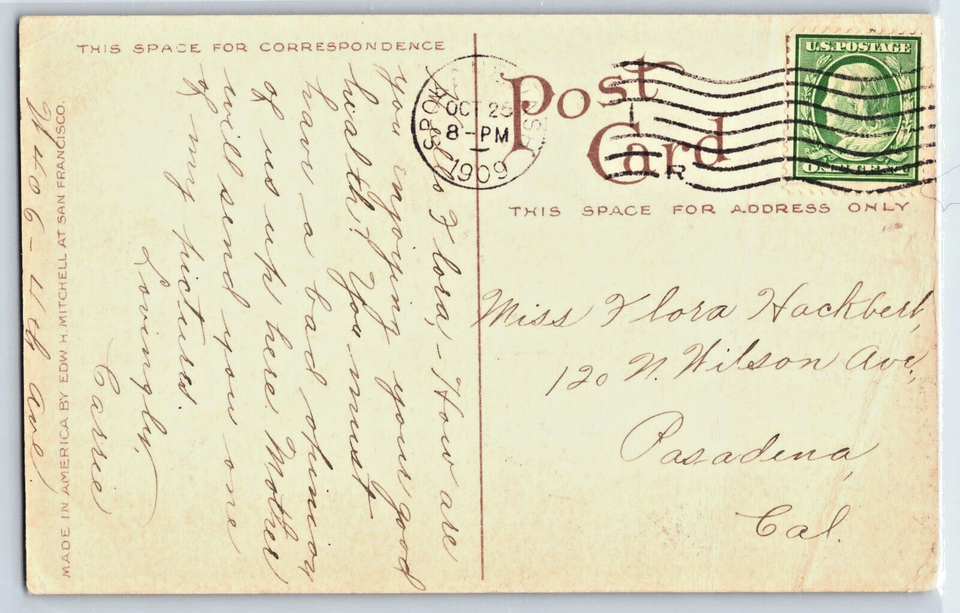 THIS SPACE FOR CORRESPONDENCE
Hello Flora, - How are
you enjoying your good
health? You must
have a bad opinion
of us up here. Mother
will send you one
of my pictures.
Lovingly,
Carrie
W 406 - 11th Ave
MADE IN AMERICA BY EDW. H. MITCHELL AT SAN FRANCISCO.
Post
Card
OCT 25
8-PM
1909
U.S. POSTAGE
THIS SPACE FOR ADDRESS ONLY
Miss Flora Hackbert,
120 N. Wilson Ave,
Pasadena,
Cal.